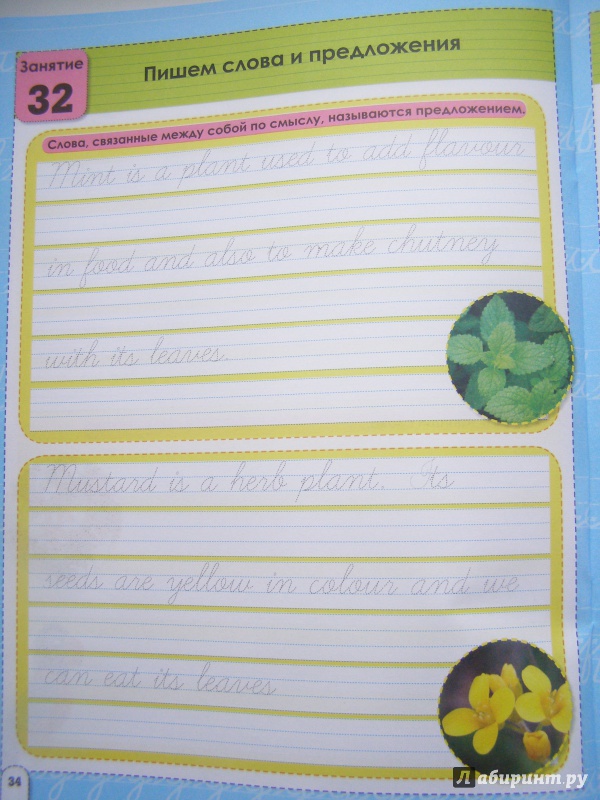 Занятие
32
Пишем слова и предложения
Слова, связанные между собой по смыслу, называются предложением.
Mint is a plant used to add flavour
in food and also to make chutney
with its leaves.
Mustard is a herb plant. Its
seeds are yellow in colour and we
can eat its leaves
34
Лабиринт.ру